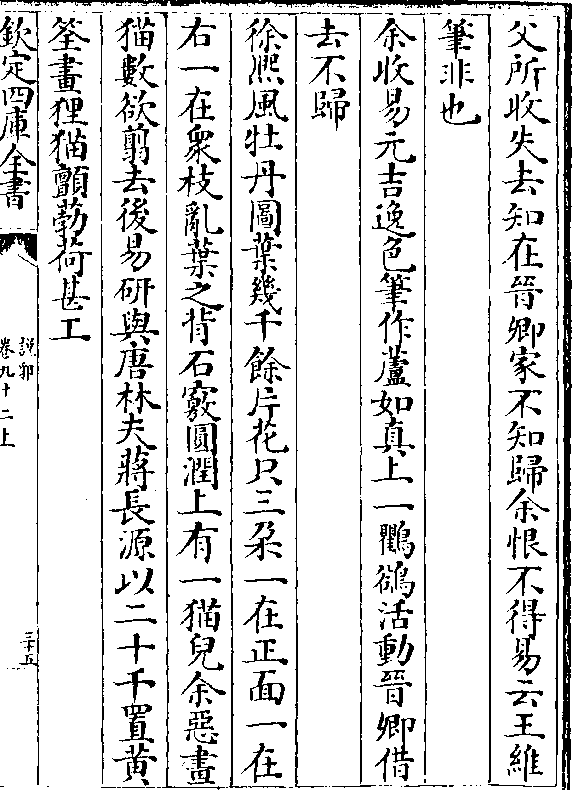 父所收失去知在晉卿家不知歸余恨不得易云王維
筆非也
余收易元吉逸色筆作蘆如真上一鸜鵒活動晉卿借
去不歸
徐熙風牡丹圖葉幾千餘片花只三朶一在正面一在
右一在衆枝亂葉之背石竅圓潤上有一猫兒余惡畫
猫數欲翦去後易研與唐林夫蔣長源以二十千置黄
筌畫狸猫顫葧荷甚工
欽定四庫全書
說郛
卷九十二上
三十五